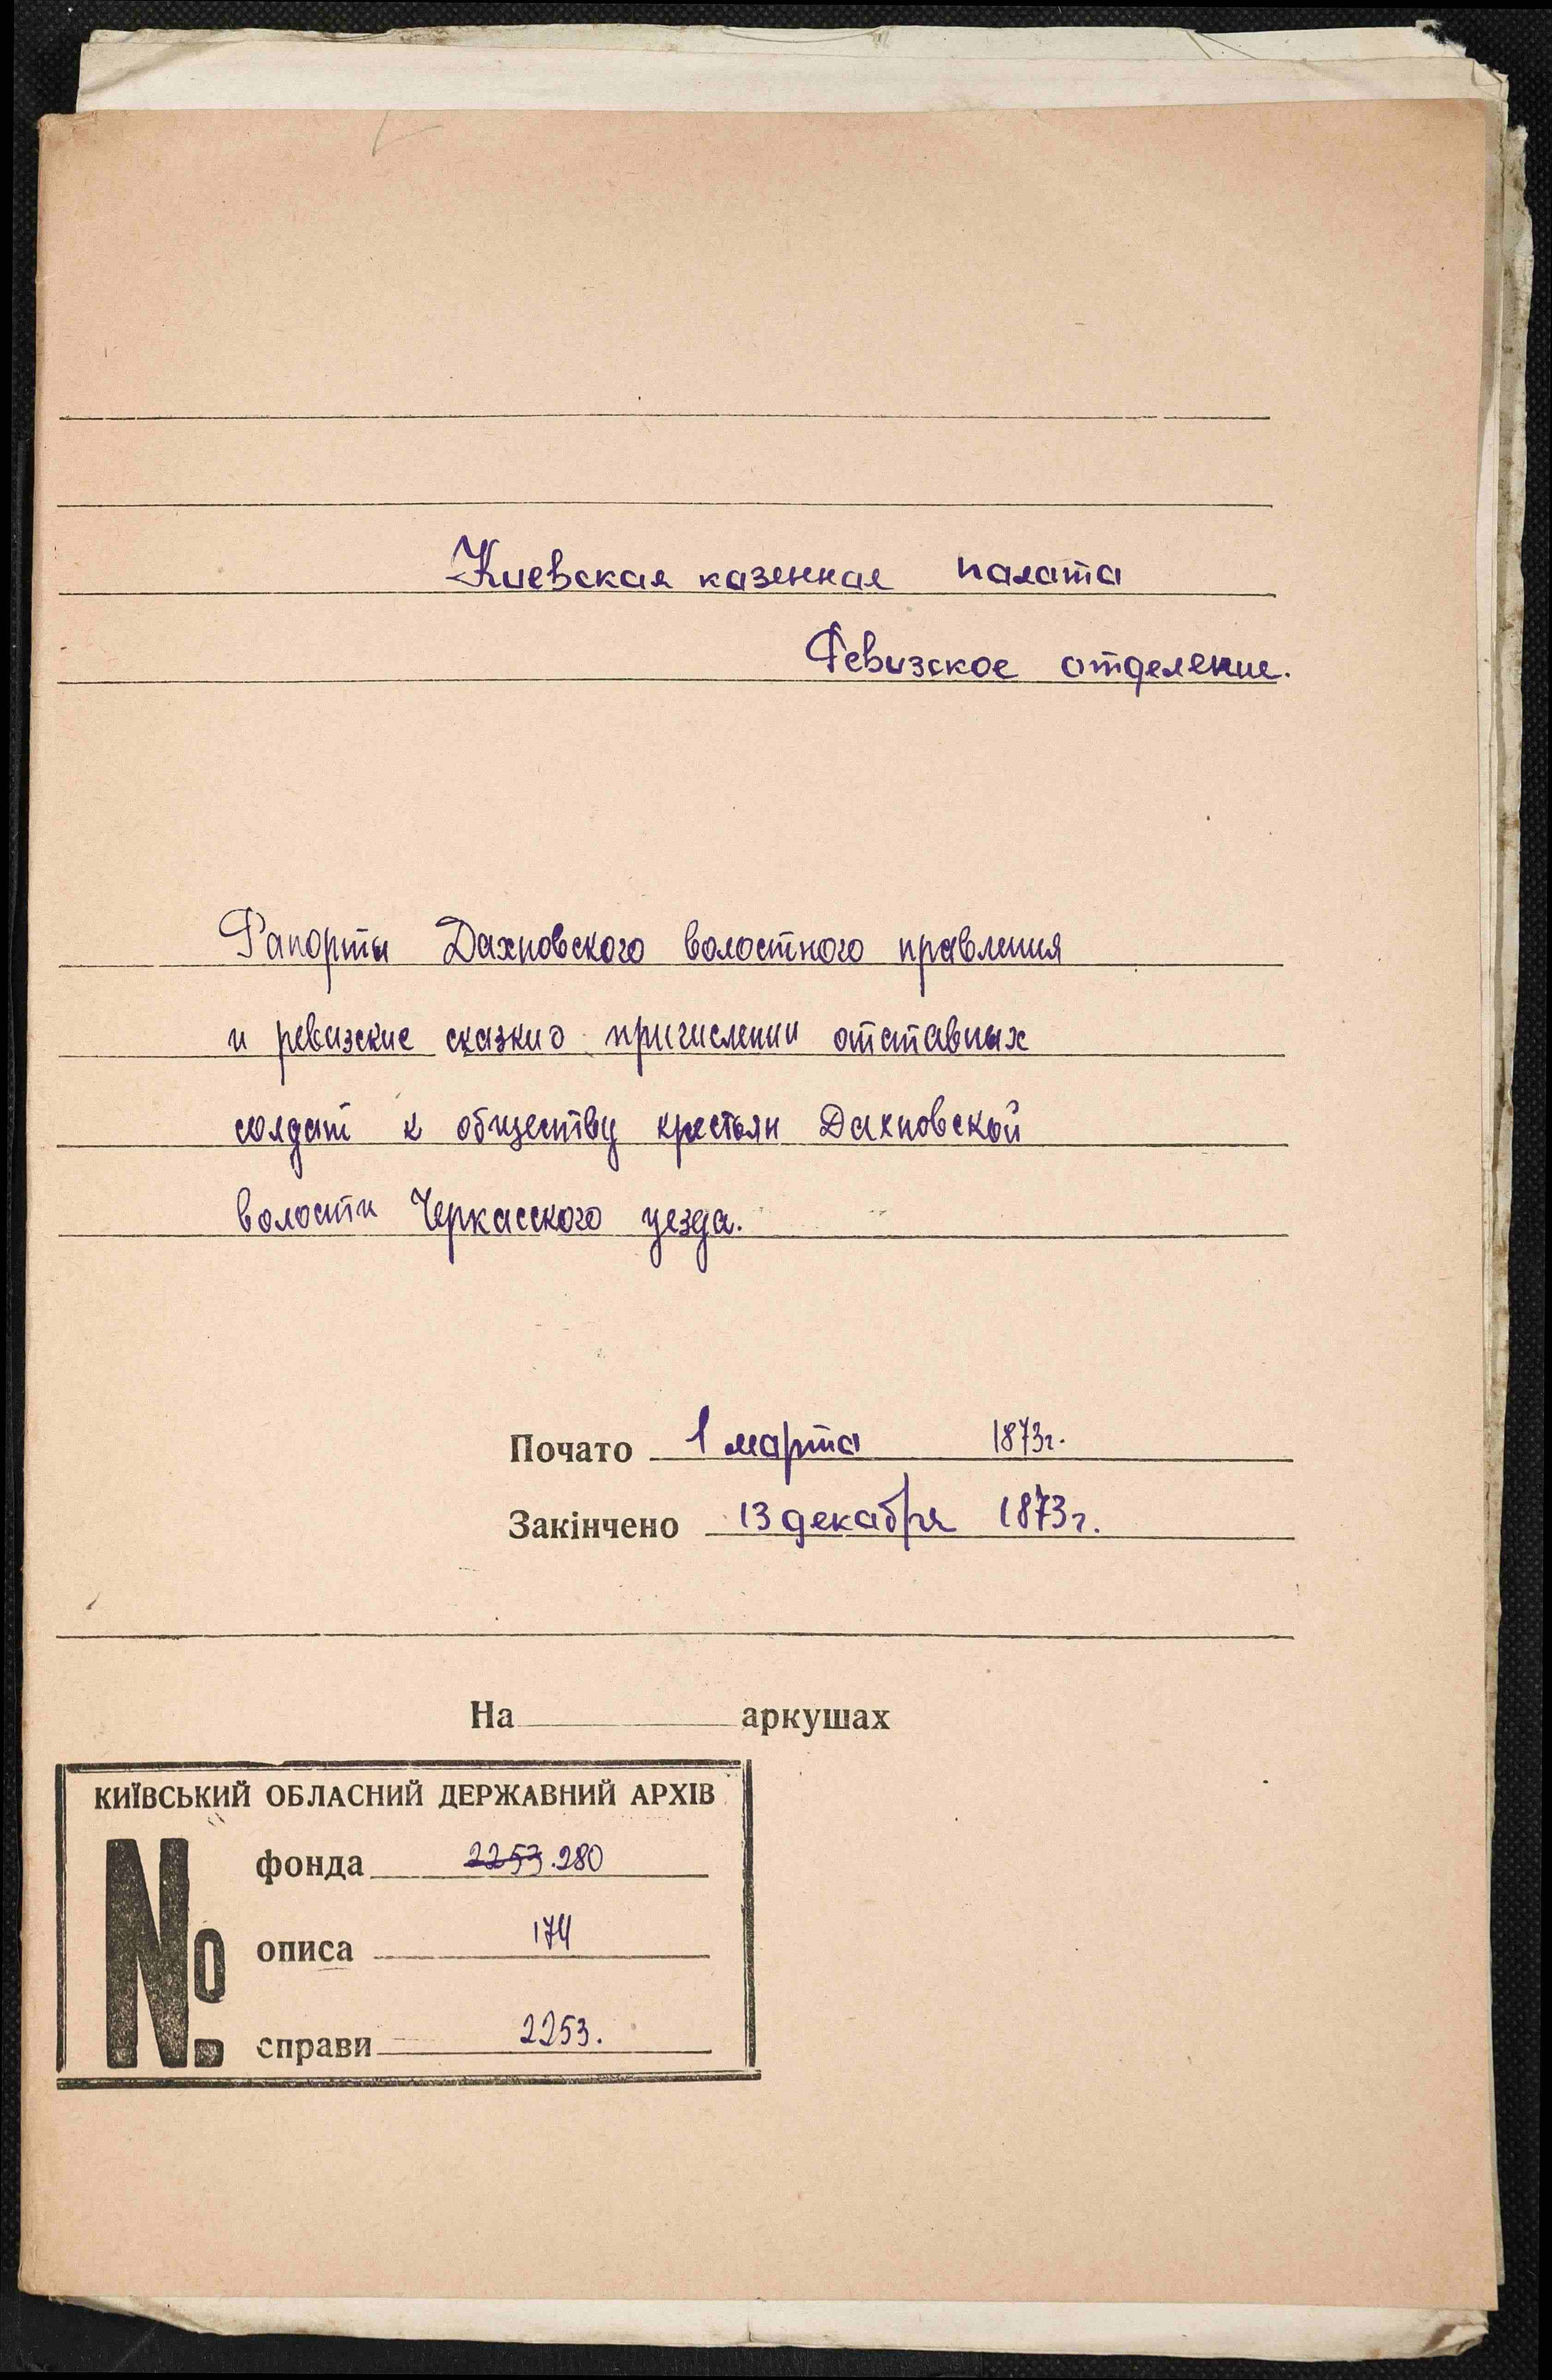 Киевская казенная палата
Ревизское отделение.
Рапорты Дахновского волостного правления
и ревизские сказки о причислении отставных
солдат к обществу крестьян Дахновской
волости Черкасского уезда.
Почато 1 марта 1873г.
Закінчено 13 декабря 1873г.
На аркушах
КИЇВСЬКИЙ ОБЛАСНИЙ ДЕРЖАВНИЙ АРХІВ
№ фонда 2253. 280
описа 174
справи 2253.